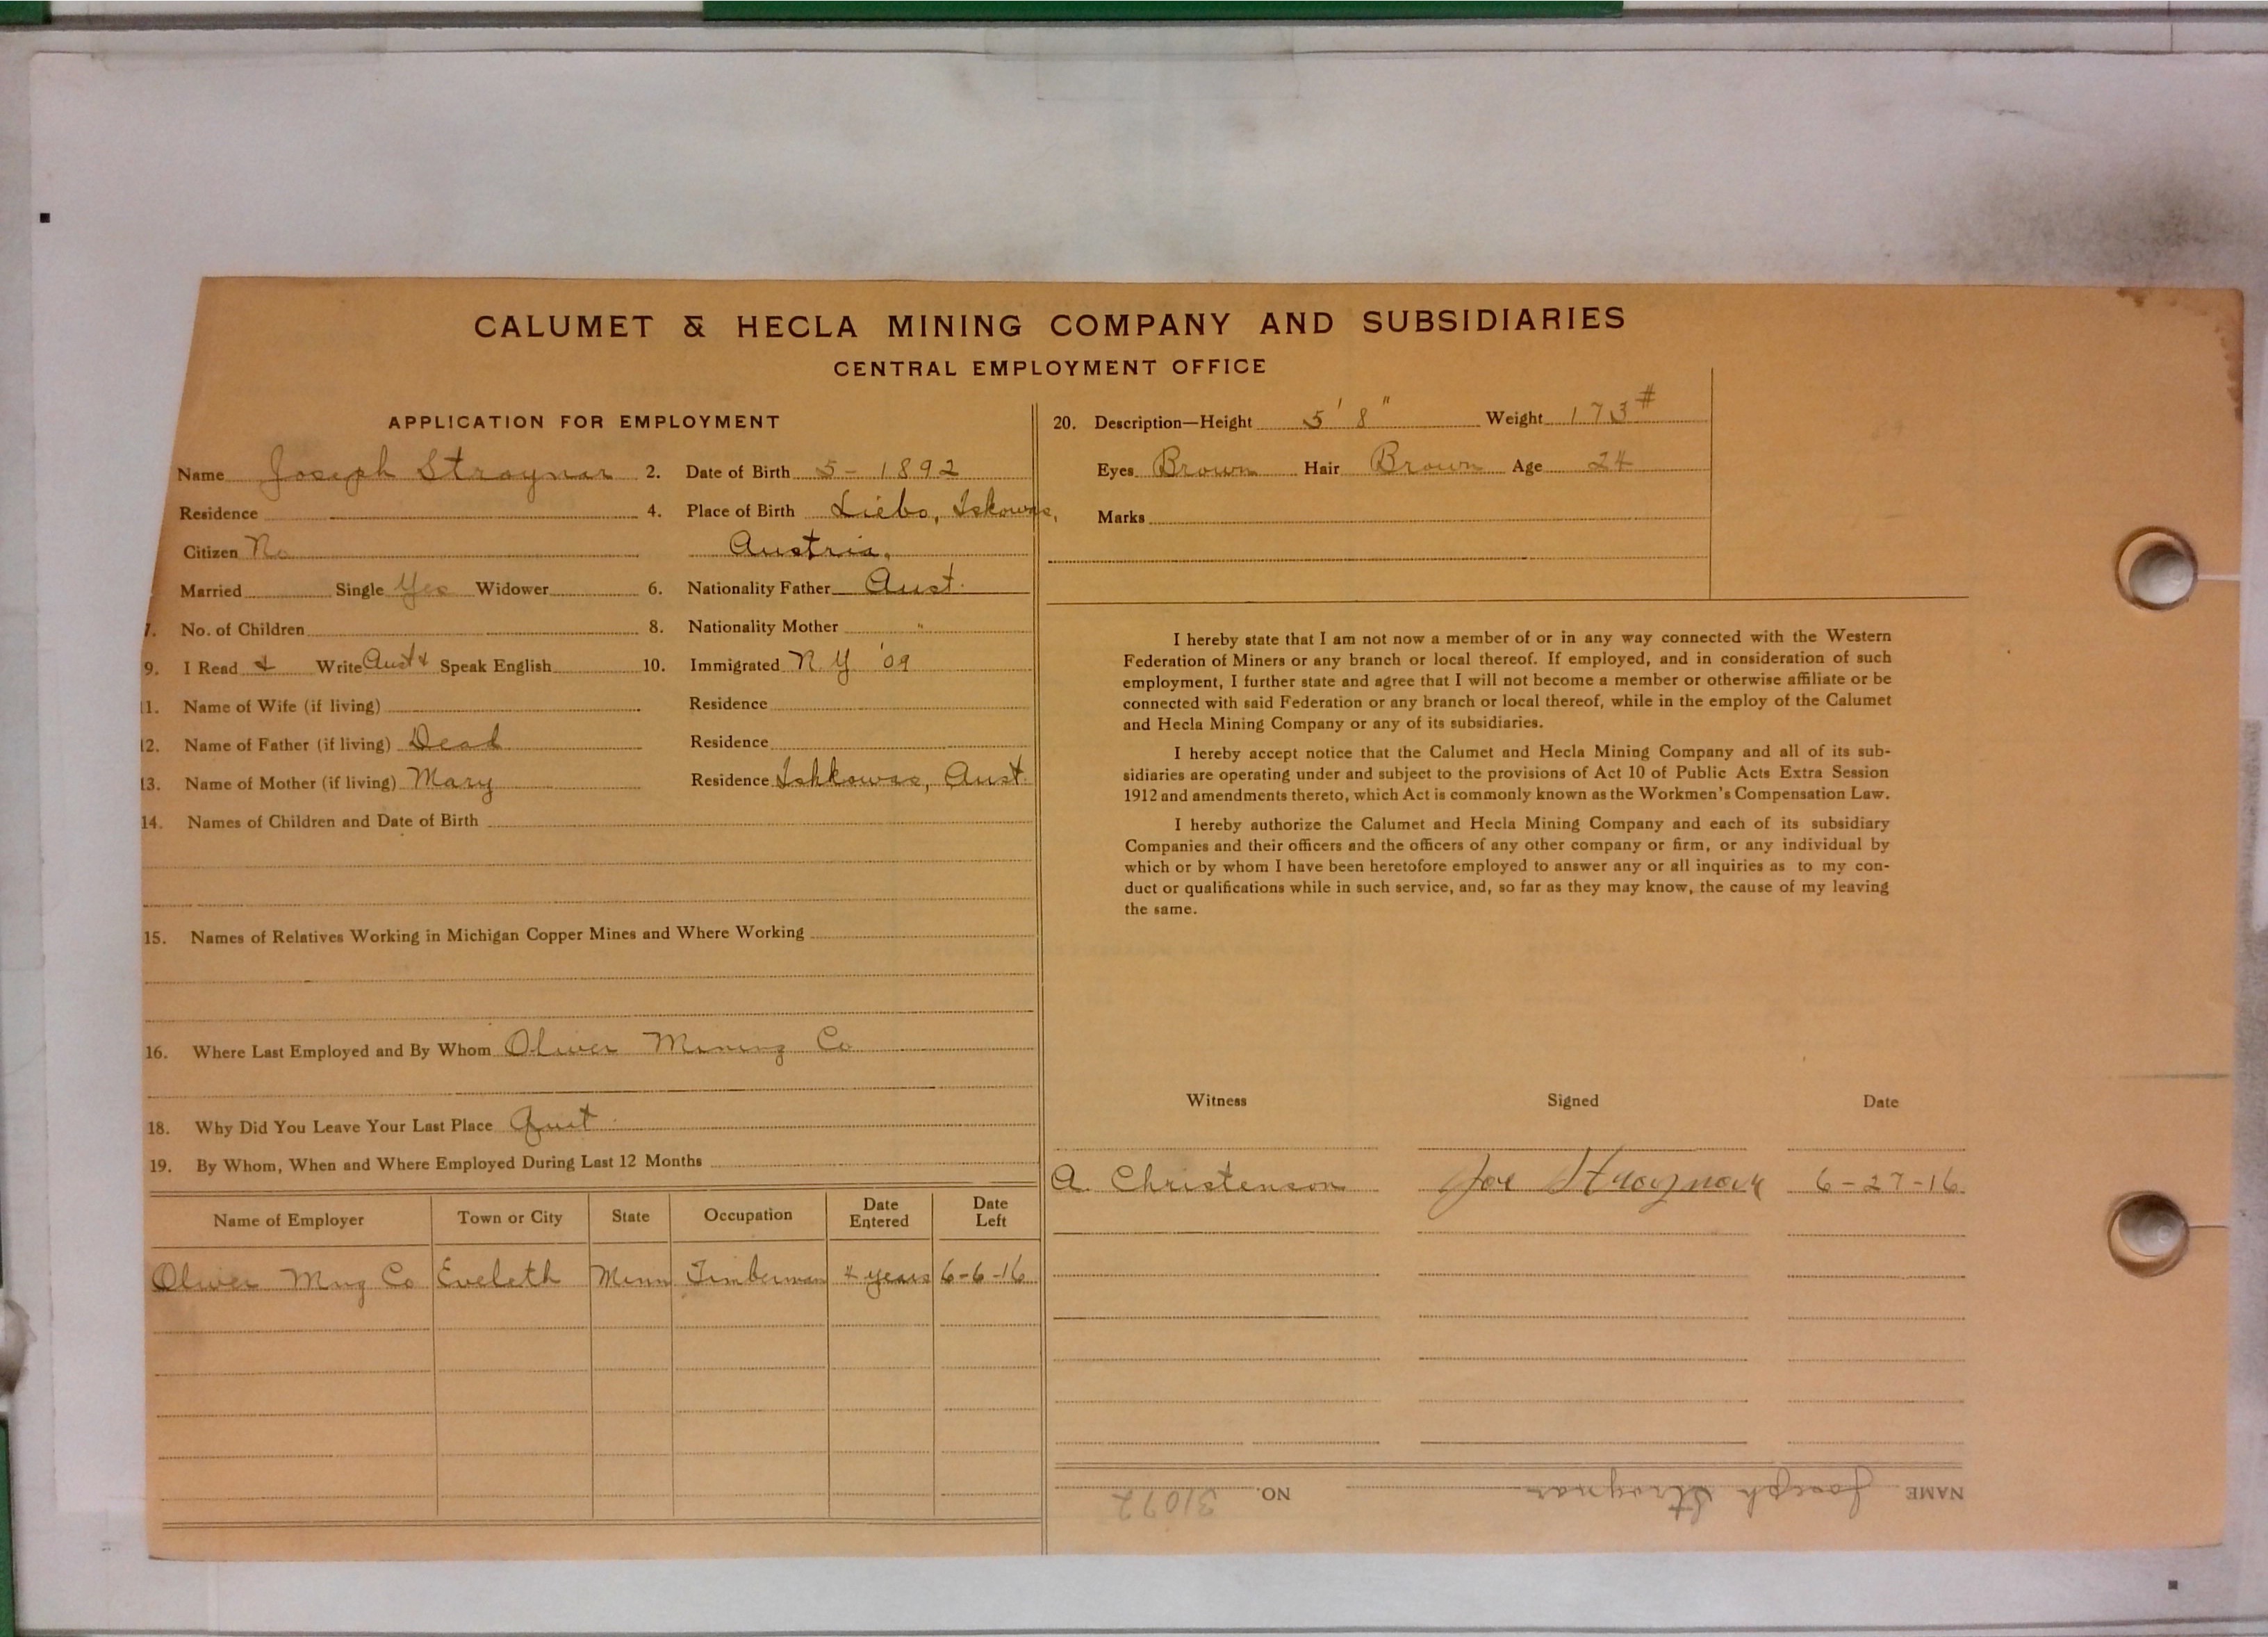 CALUMET & HECLA MINING COMPANY AND SUBSIDIARIES
CENTRAL EMPLOYMENT OFFICE
APPLICATION FOR EMPLOYMENT
Name Joseph Stroynar 2. Date of Birth 5-1892
Residence 4. Place of Birth Liebo, Iskowas,
Citizen No Austria.
Married Single Yes Widower 6. Nationality Father Aust.
7. No. of Children 8. Nationality Mother "
9. I Read & Write Aust & Speak English 10. Immigrated N Y '09
11. Name of Wife (if living) Residence
12. Name of Father (if living) Dead Residence
13. Name of Mother (if living) Mary Residence Ishkowas, Aust.
14. Names of Children and Date of Birth
15. Names of Relatives Working in Michigan Copper Mines and Where Working
16. Where Last Employed and By Whom Oliver Mining Co
18. Why Did You Leave Your Last Place Quit
19. By Whom, When and Where Employed During Last 12 Months
Name of Employer Town or City State Occupation Date Entered Date Left
Oliver Mng Co Eveleth Minn Timberman 4 years 6-6-16
20. Description—Height 5' 8" Weight 173#
Eyes Brown Hair Brown Age 24
Marks
I hereby state that I am not now a member of or in any way connected with the Western
Federation of Miners or any branch or local thereof. If employed, and in consideration of such
employment, I further state and agree that I will not become a member or otherwise affiliate or be
connected with said Federation or any branch or local thereof, while in the employ of the Calumet
and Hecla Mining Company or any of its subsidiaries.
I hereby accept notice that the Calumet and Hecla Mining Company and all of its sub-
sidiaries are operating under and subject to the provisions of Act 10 of Public Acts Extra Session
1912 and amendments thereto, which Act is commonly known as the Workmen's Compensation Law.
I hereby authorize the Calumet and Hecla Mining Company and each of its subsidiary
Companies and their officers and the officers of any other company or firm, or any individual by
which or by whom I have been heretofore employed to answer any or all inquiries as to my con-
duct or qualifications while in such service, and, so far as they may know, the cause of my leaving
the same.
Witness Signed Date
A. Christenson Joe Stroynar 6-27-16
NAME Joseph Stroynar NO. 31072